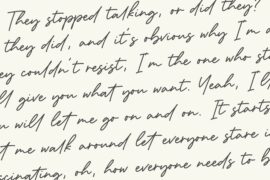 They stopped talking, or did they?
they did, and it's obvious why I'm a
ey couldn't resist, I'm the one who st
ll give you what you want. Yeah, I l
u will let me go on and on. It starts
t me walk around let everyone stare i
cinating, oh, how everyone needs to b